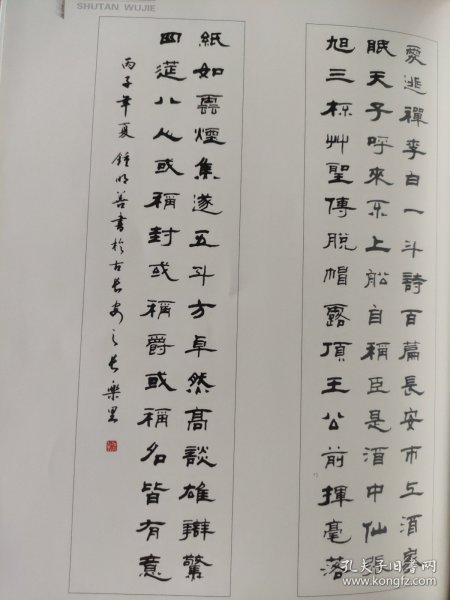 SHUTAN WUJIE
愛逃禪李白一斗詩百篇長安市上酒家
眠天子呼來不上船自稱臣是酒中仙張
旭三杯艸聖傳脫帽露頂王公前揮毫落
紙如雲煙焦遂五斗方卓然高談雄辯驚
四筵八人或稱封或稱爵或稱名皆有意
丙子年夏鍾明善書於古長安之長樂里
孔夫子旧书网
www.kongfz.com